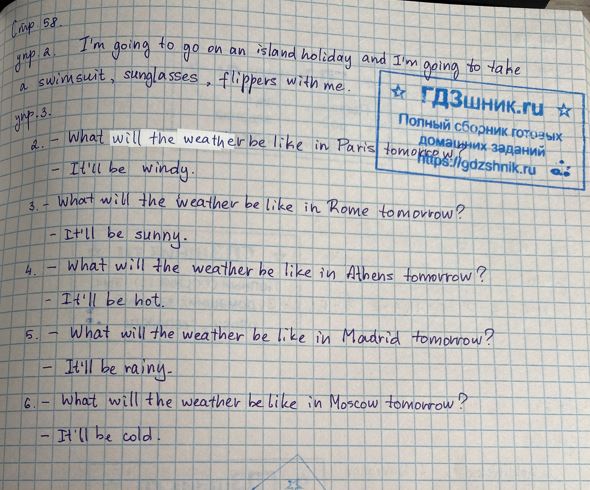 Стр 58.
упр.2. I'm going to go on an island holiday and I'm going to take
a swimsuit, sunglasses, flippers with me.
ГДЗшник.ru
Полный сборник готовых
домашних заданий
https://gdzshnik.ru
упр.3.
2. - What will the weather be like in Paris tomorrow?
- It'll be windy.
3. - What will the weather be like in Rome tomorrow?
- It'll be sunny.
4. - What will the weather be like in Athens tomorrow?
- It'll be hot.
5. - What will the weather be like in Madrid tomorrow?
- It'll be rainy.
6. - What will the weather be like in Moscow tomorrow?
- It'll be cold.